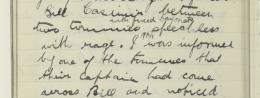 Bill Casimir between
two tommies ^with fixed bayonets^ speechless
with rage. I was informed
by one of the tommies that
their Captain had come
across Bill and noticed